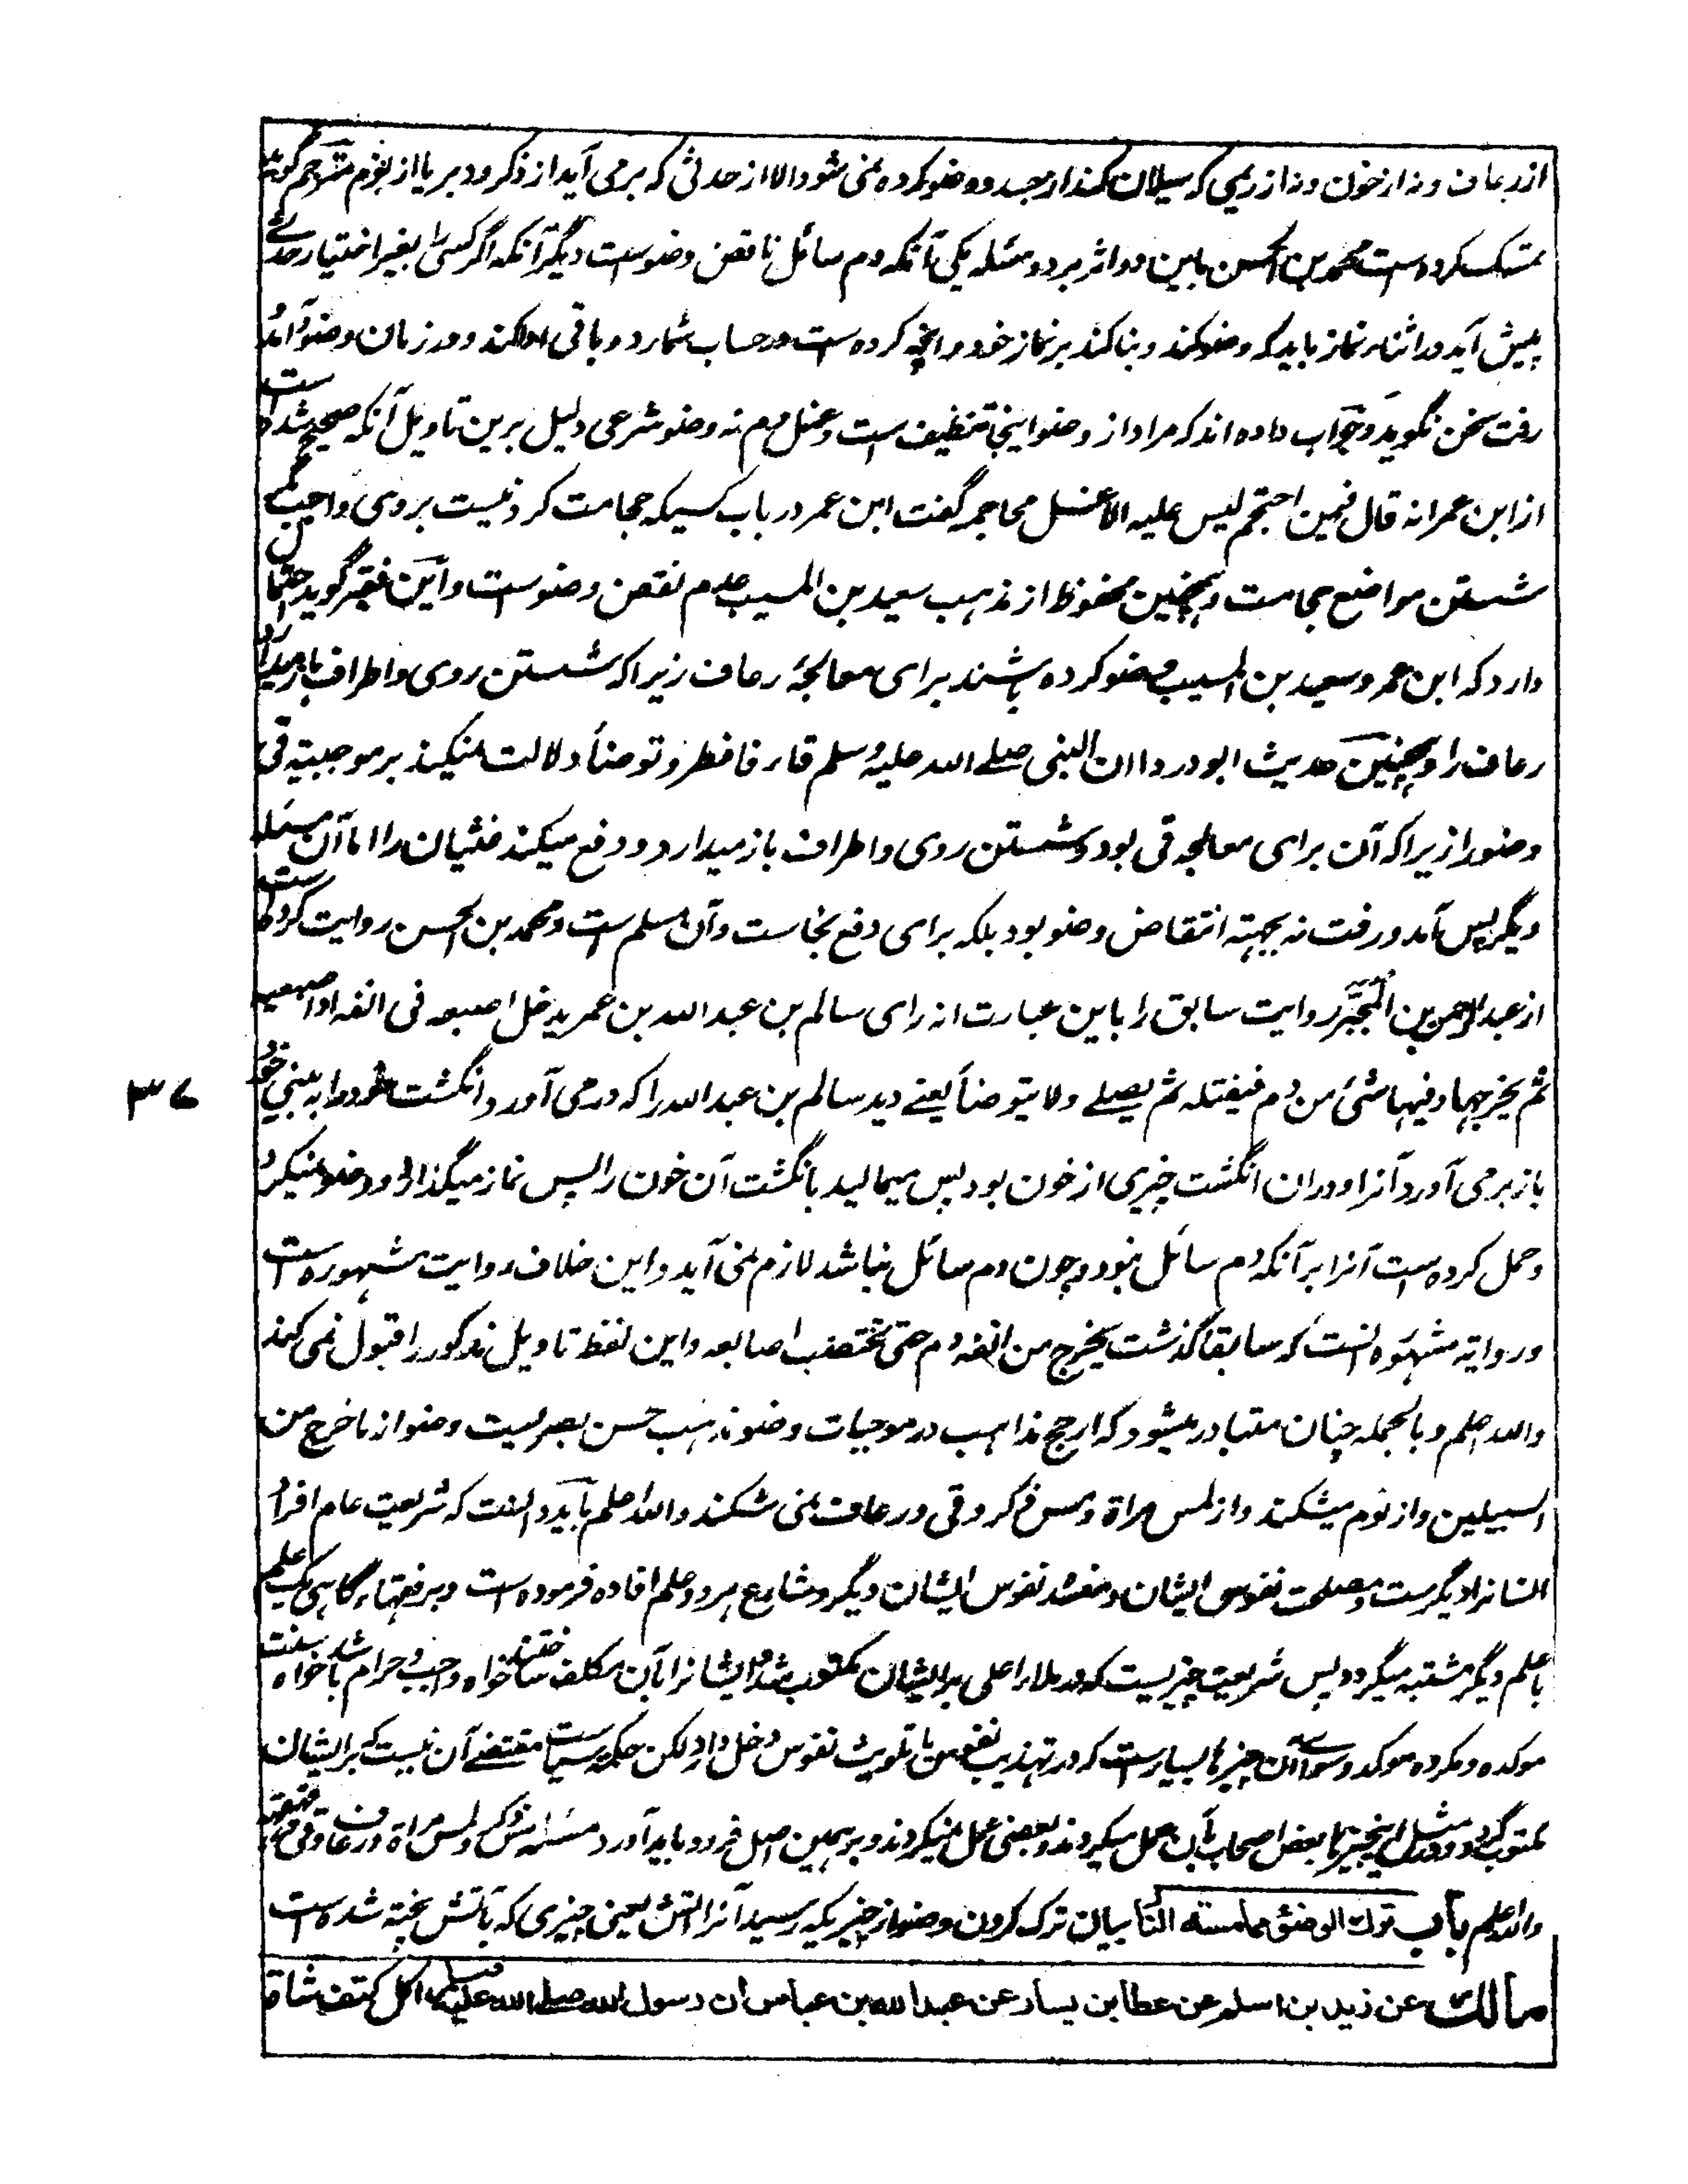 از رعاف و نه از خون و نه از ریمی که سیلان کند از جسد و وضو کرده نمی شود الا از حدثی که برمی آید از ذکر و دبر یا از نوم مترجم گوید
تمسک کرده است محمد بن الحسن باین دو اثر بر دو مسئله یکی آنکه دم سائل ناقض وضوست دیگر آنکه اگر کسی را بغیر اختیار حدثے
پیش آید در اثناء نماز باید که وضو کند و بنا کند بر نماز خود و انچه کرده است در حساب شمارد و باقی ادا کند و در زمان وضو و آمد
رفت سخن نگوید و جواب داده اند که مراد از وضو اینجا تنظیف است و غسل دم نه وضو شرعی دلیل برین تاویل آنکه صحیح شده است
از ابن عمر انه قال فیمن احتجم لیس علیه الا غسل محاجمه گفت ابن عمر در باب کسیکه حجامت کرد نیست بر وی واجب مگر
شستن مواضع حجامت و همچنین محفوظ از مذهب سعید بن المسیب عدم نقض وضوست و این فقیر گوید احتمال
دارد که ابن عمر و سعید بن المسیب وضو کرده باشند برای معالجهٔ رعاف زیرا که شستن روی و اطراف باز میدارد
رعاف را و همچنین حدیث ابو درداء ان النبی صلے الله علیه و سلم قاء فافطر و توضأ دلالت نمیکند بر موجبیة قی
وضو را زیرا که آن برای معالجه قی بود و شستن روی و اطراف باز میدارد و دفع میکند غثیان را اما آن مسئله
دیگر پس آمد و رفت نه بجهة انتقاض وضو بود بلکه برای دفع نجاست و آن مسلم است و محمد بن الحسن روایت کرده است
از عبد الرحمن بن المجبر روایت سابق را باین عبارت انه رای سالم بن عبد الله بن عمر یدخل اصبعه فی انفه او اصبعیه
ثم یخرجها و فیها شئ من دم فیفتله ثم یصلے و لا یتوضأ یعنے دید سالم بن عبد الله را که درمی آورد انگشت خود را به بینی خود
باز برمی آورد آنرا و دران انگشت چیزی از خون بود پس میمالید بانگشت آن خون را پس نماز میگذارد و وضو نمیکرد
و حمل کرده است آنرا بر آنکه دم سائل نبود و چون دم سائل نباشد لازم نمی آید و این خلاف روایت مشهوره است
و روایة مشهوره آنست که سابقا گذشت یخرج من انفه دم حتی تختضب اصابعه و این لفظ تاویل مذکور را قبول نمی کند
والله اعلم و بالجمله چنان متبادر میشود که ارجح مذاهب در موجبات وضو مذهب حسن بصریست وضو از ما خرج من
السبیلین و از نوم میشکند و از لمس مراة و مس ذکر و قی و رعاف نمی شکند والله اعلم باید دانست که شریعت عام افراد
انسانرا دیگرست و مصلحت نفوس ایشان و مفسده نفوس ایشان دیگر و شارع هر دو علم افاده فرموده است و بر فقهاء گاهی یک علم
با علم دیگر مشتبه میگردد پس شریعت چیزیست که در ملاء اعلی بر ایشان مکتوب شد و ایشانرا بآن مکلف ساختند خواه واجب و حرام باشد خواه سنت
موکده و مکروه موکد و سوای آن چیزها بسیارست که در تهذیب نفوس یا تلویث نفوس دخل دارد لکن حکمت سیاست مقتضے آن نیست که بر ایشان
مکتوب گردد و در مثل این چیزها بعض اصحاب بآن عمل میکردند و بعضی عمل نمیکردند و بر همین اصل فرود باید آورد مسئله مس ذکر و لمس مراة و رعاف و قی و قهقهه
والله اعلم باب ترك الوضوء مما مسته النار بیان ترک کردن وضو از چیزیکه رسید آنرا آتش یعنی چیزی که بآتش پخته شده است
مالك عن زيد بن اسلم عن عطا بن يسار عن عبد الله بن عباس ان رسول الله صلے الله عليه وسلم اكل كتف شاة
۳۷